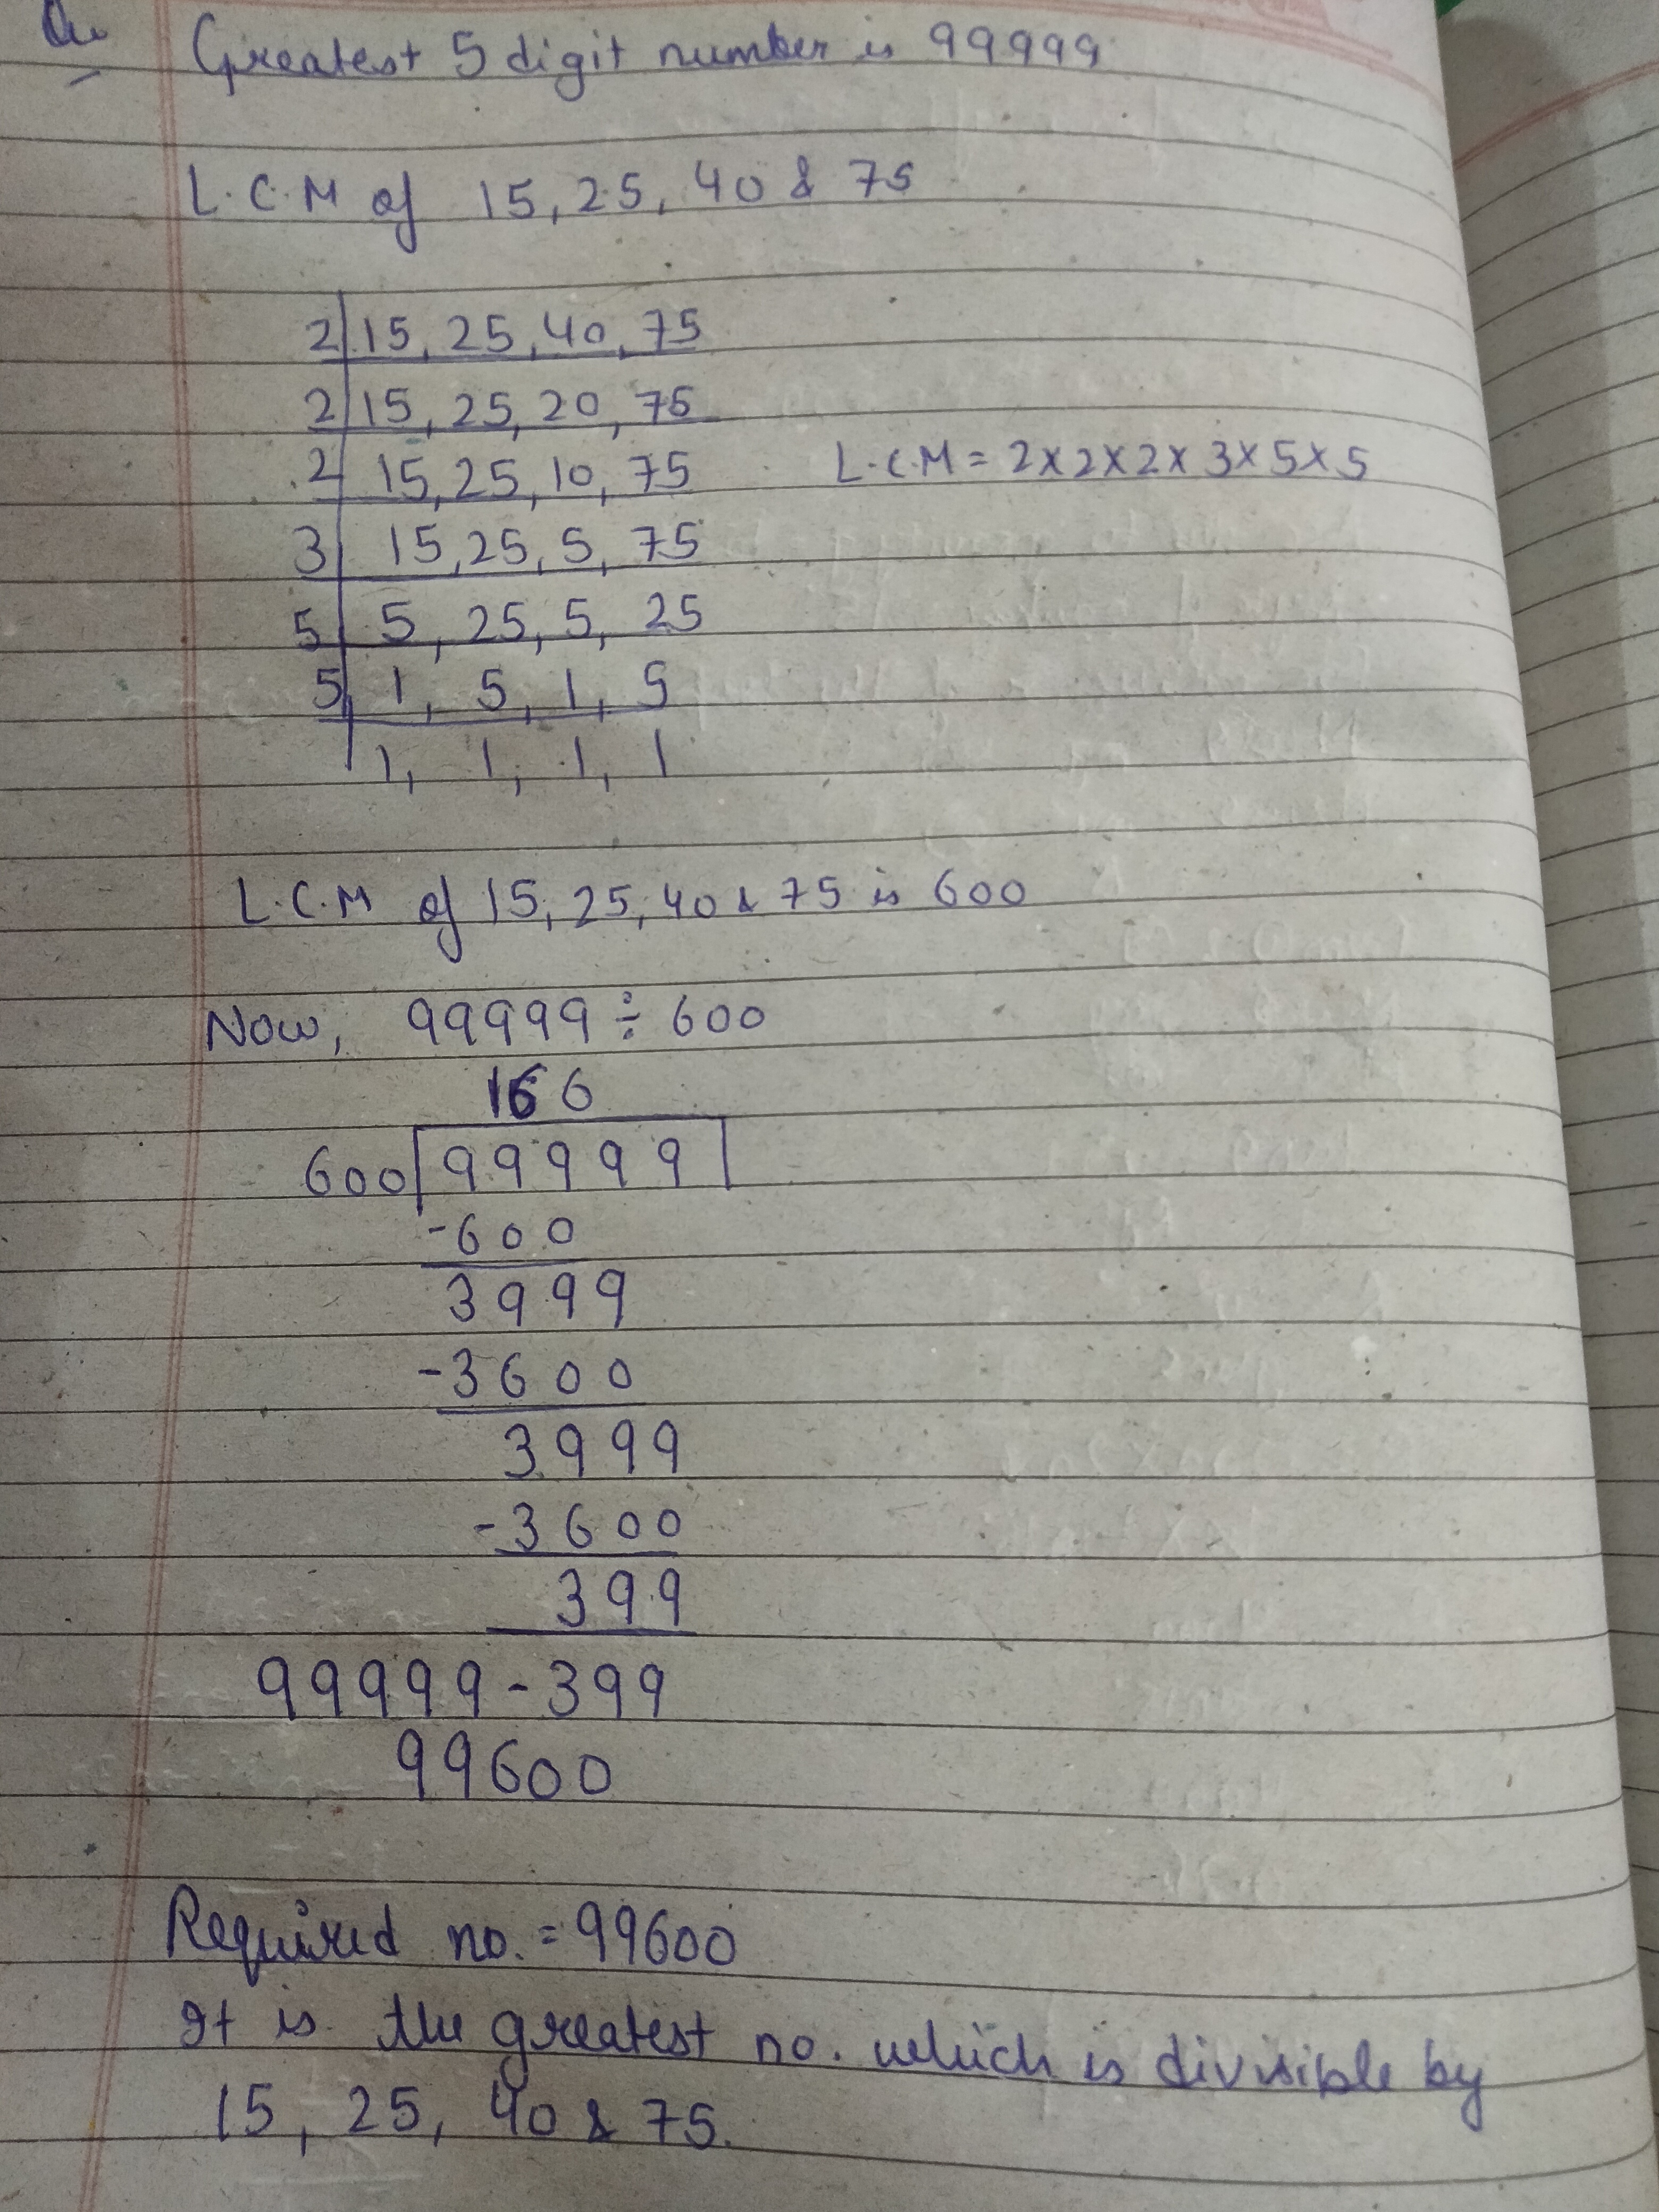 Greatest 5 digit number is 99999
L.C.M of 15, 25, 40 & 75
2 15, 25, 40, 75
2 15, 25, 20, 75
2 15, 25, 10, 75
L.C.M = 2×2×2×3×5×5
3 15, 25, 5, 75
5 5, 25, 5, 25
5 1, 5, 1, 5
1, 1, 1, 1
L.C.M of 15, 25, 40 & 75 is 600
Now, 99999 ÷ 600
166
600 99999
-600
3999
-3600
3999
-3600
399
99999 - 399
99600
Required no. = 99600
It is the greatest no. which is divisible by
15, 25, 40 & 75.